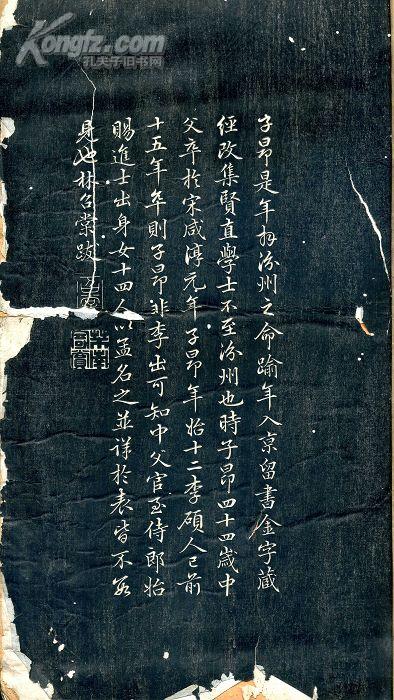 Kongfz.com
孔夫子旧书网
子昂是年拜汾州之命踰年入京留書金字藏
經改集賢直學士不至汾州也時子昂四十四歲中
父卒於宋咸淳元年子昂年始十二李碩人已前
十五年卒則子昂非李出可知中父官至侍郎始
賜進士出身女十四人以孟名之並詳於表皆不
見也林召棠跋